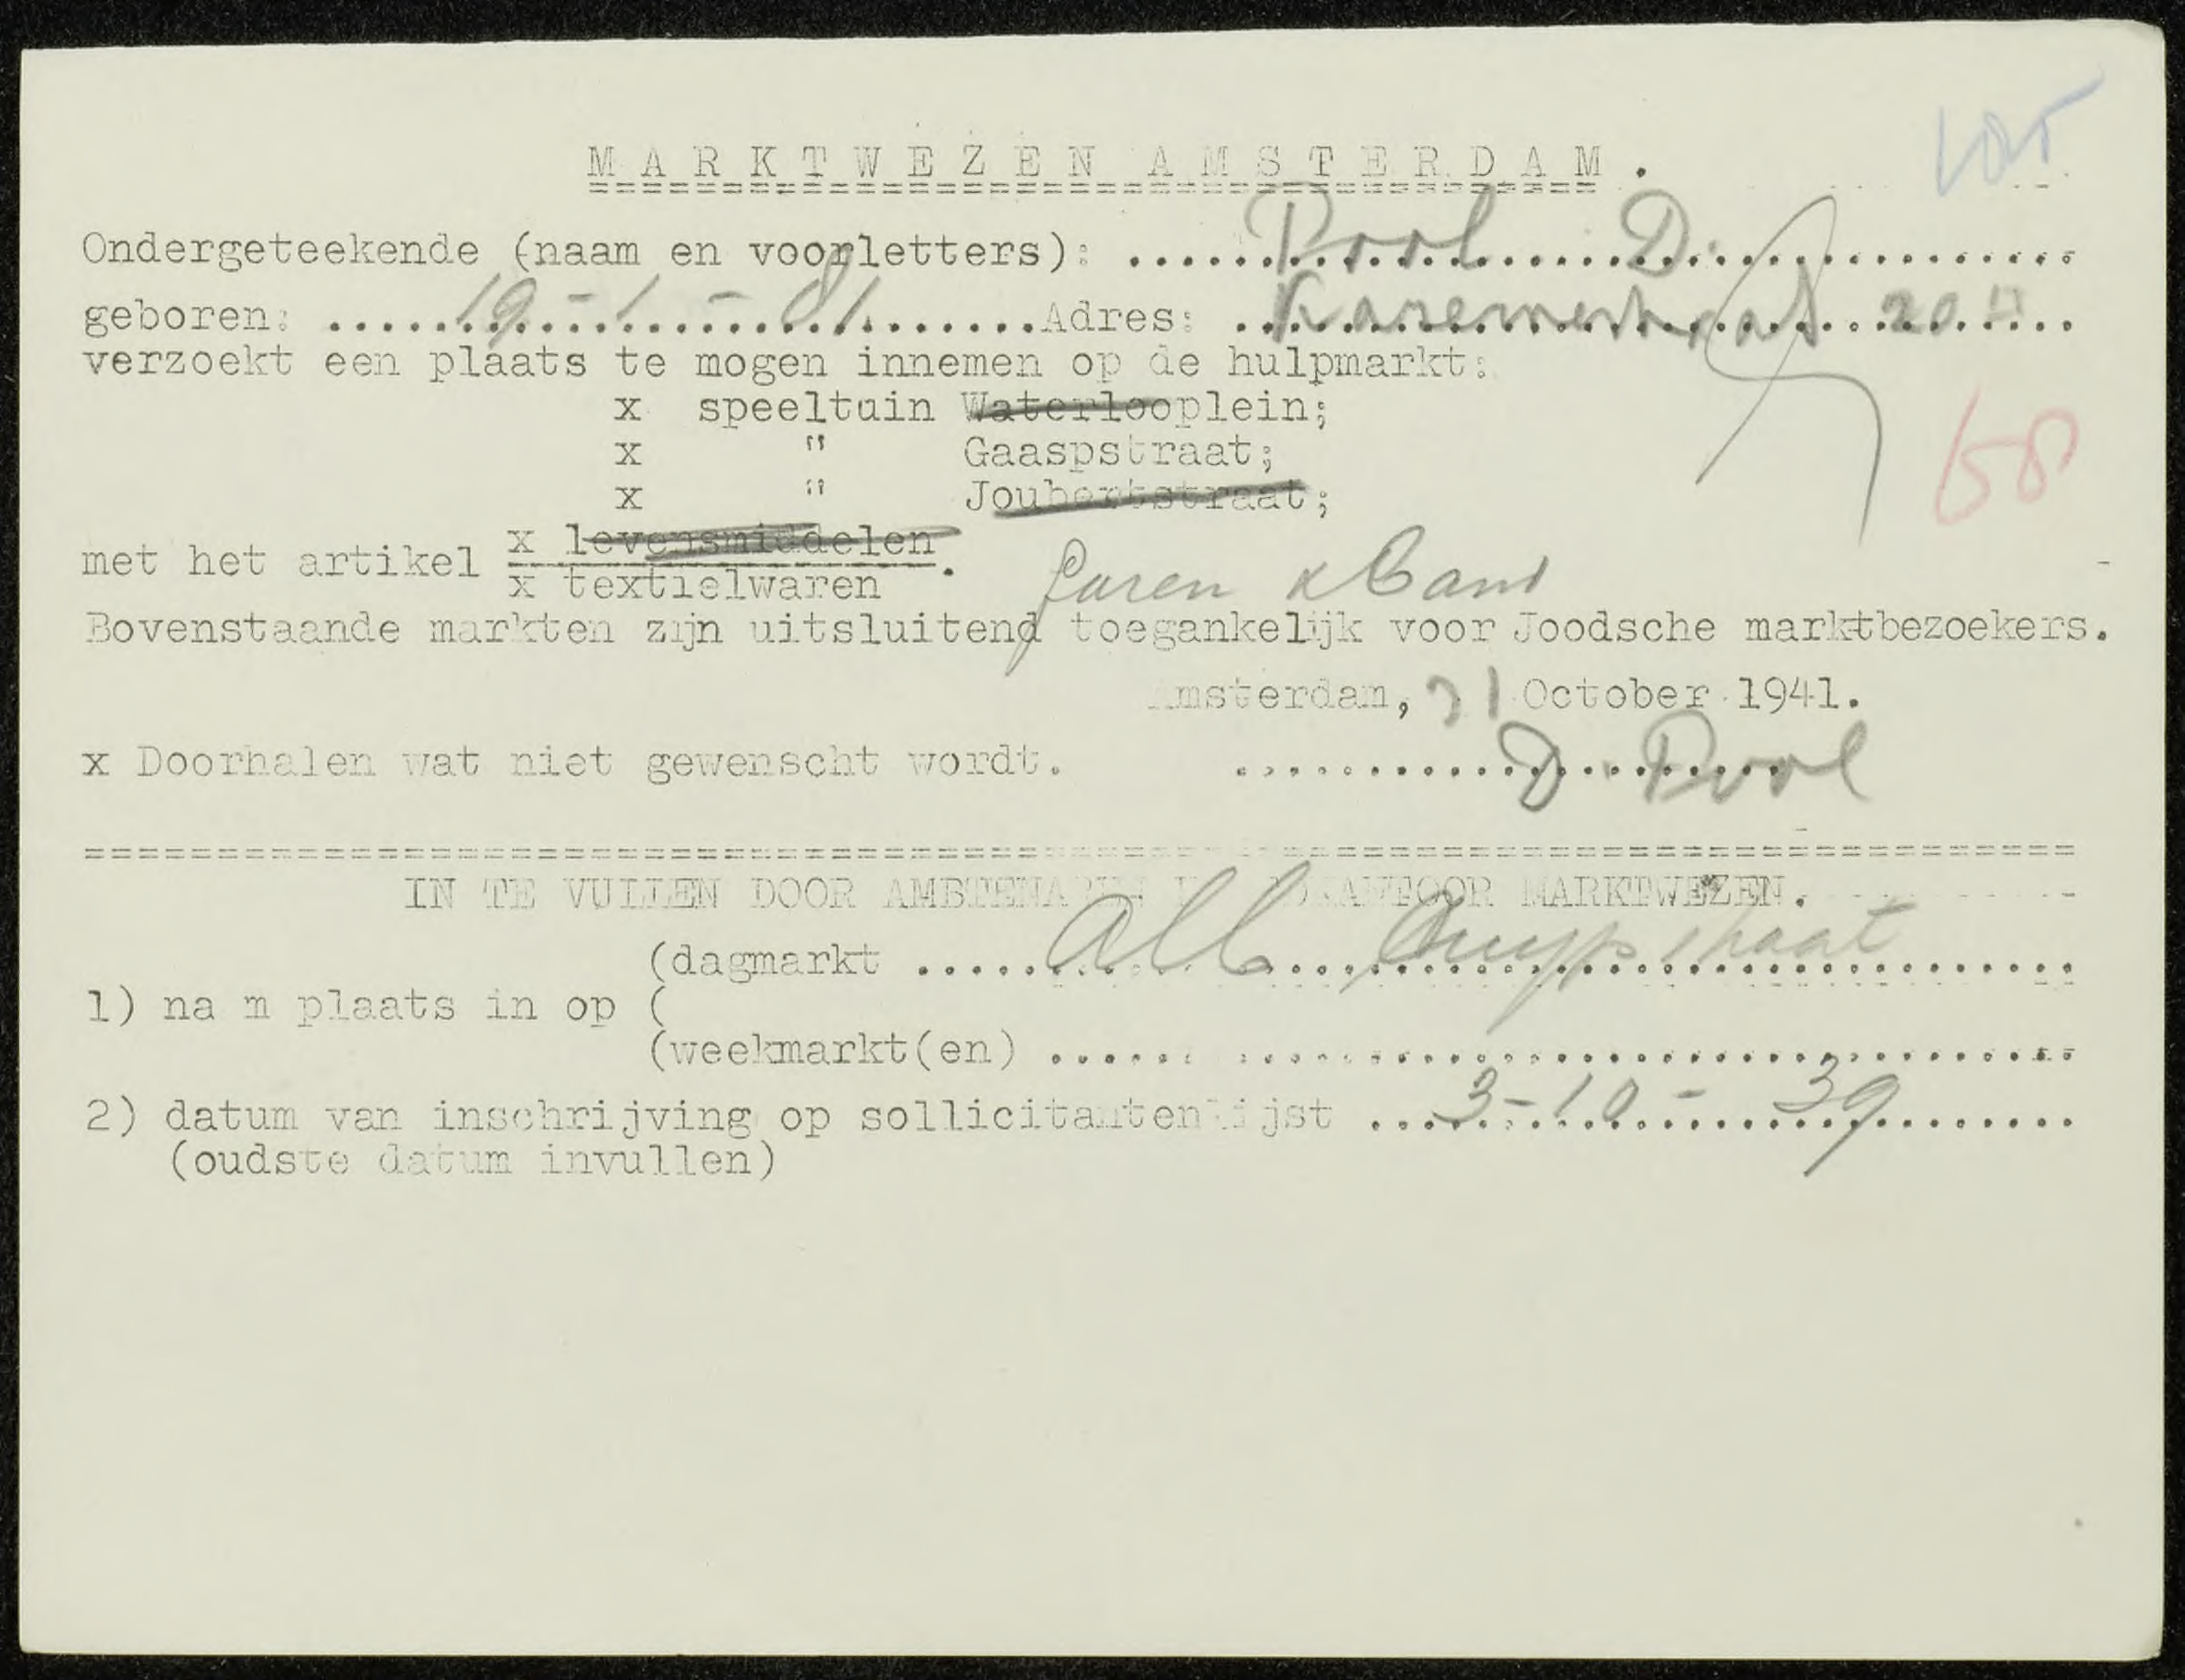 105
MARKTWEZEN AMSTERDAM.
Ondergeteekende (naam en voorletters): Pool D.
geboren: 19-1-01 Adres: 20 II
verzoekt een plaats te mogen innemen op de hulpmarkt:
x speeltuin Waterlooplein;
x " Gaaspstraat;
x " Joubertstraat;
58
x levensmiddelen
met het artikel
x textielwaren. Garen & Band
Bovenstaande markten zijn uitsluitend toegankelijk voor Joodsche marktbezoekers.
Amsterdam, 21 October 1941.
x Doorhalen wat niet gewenscht wordt. D. Pool
IN TE VULLEN DOOR AMBTENAREN MARKTWEZEN.
(dagmarkt Alb Cuypstraat
1) na m plaats in op (
(weekmarkt(en)
2) datum van inschrijving op sollicitantenlijst 3-10-39
(oudste datum invullen)